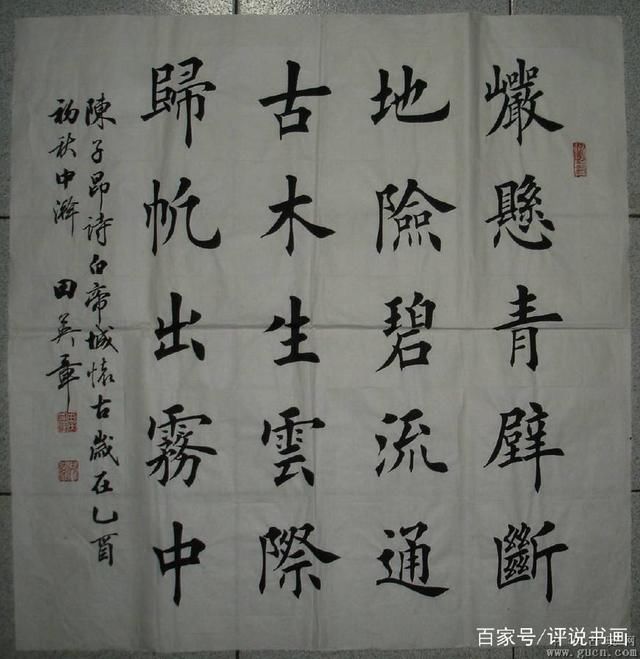 巖懸青壁斷
地險碧流通
古木生雲際
歸帆出霧中
陳子昂詩白帝城懷古歲在乙酉
初秋中澣 田英章
百家号/评说书画
www.gucn.com